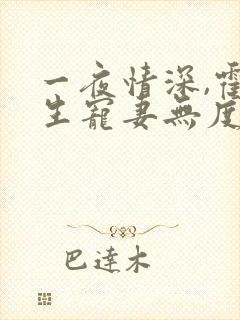 一夜情深,霍
生寵妻無度
巴達木